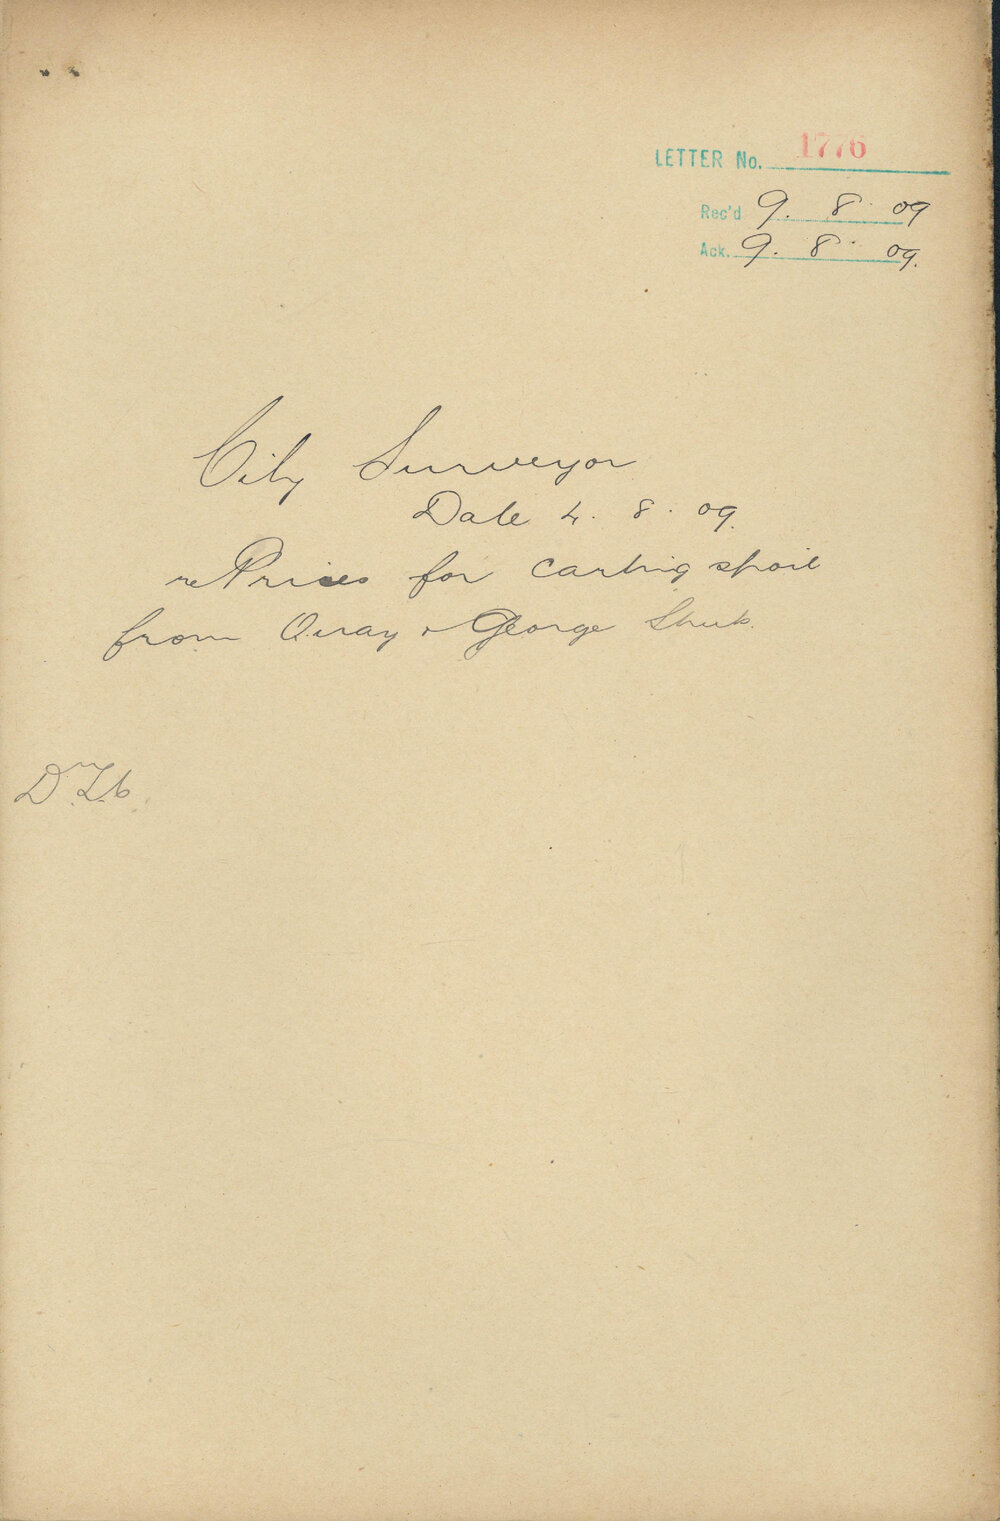 LETTER No. 1776
Rec'd 9. 8. 09
Ack. 9. 8. 09.
City Surveyor
Date 4. 8. 09.
re Prices for carting spoil
from Quay & George Streets.